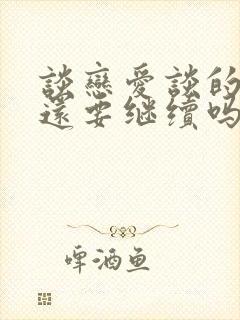 談戀愛談的
還要继續吗
啤酒鱼